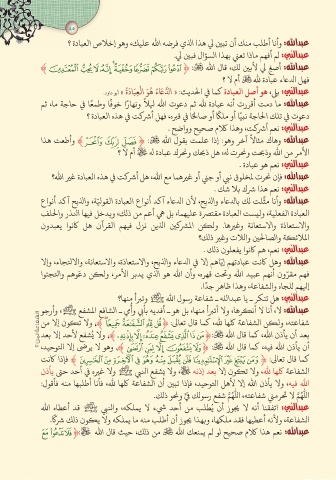 عبدالله: وأنا أطلب منك أن تبين لي هذا الذي فرضه الله عليك، وهو إخلاص العبادة ؟
عبدالنبي: لم أفهم ماذا تعني بهذا السؤال فبين لي.
عبدالله: أصغ لي لأبين لك، قال الله: ﴿ ادْعُوا رَبَّكُمْ تَضَرُّعًا وَخُفْيَةً إِنَّهُ لَا يُحِبُّ الْمُعْتَدِينَ ﴾
فهل الدعاء عبادة لله أم لا ؟
عبدالنبي: بلى، هو أصل العبادة كما في الحديث: « الدُّعَاءُ هُوَ الْعِبَادَةُ » أبو داود.
عبدالله: ما دمت أقررت أنه عبادة لله ثم دعوت الله ليلاً ونهارًا خوفًا وطمعًا في حاجة ما، ثم
دعوت في تلك الحاجة نبيًّا أو ملكًا أو صالحًا في قبره، فهل أشركت في هذه العبادة ؟
عبدالنبي: نعم أشركت، وهذا كلام صحيح وواضح .
عبدالله: وهاك مثالاً آخر وهو: إذا علمت بقول الله: ﴿ فَصَلِّ لِرَبِّكَ وَانْحَرْ ﴾ وأطعت هذا
الأمر من الله وذبحت ونحرت له، هل ذبحك ونحرك عبادة له أم لا ؟
عبدالنبي: نعم هو عبادة .
عبدالله: فإن نحرت لمخلوق نبي أو جني أو غيرهما مع الله، هل أشركت في هذه العبادة غير الله؟
عبدالنبي: نعم هذا شرك بلا شك .
عبدالله: وأنا مثّلت لك بالدعاء والذبح، لأن الدعاء آكد أنواع العبادة القولية، والذبح آكد أنواع
العبادة الفعلية، وليست العبادة مقتصرة عليهما، بل هي أعم من ذلك، ويدخل فيها النذر والحلف
والاستعاذة والاستغاثة وغيرها. ولكن المشركين الذين نزل فيهم القرآن هل كانوا يعبدون
الملائكة والصالحين واللات وغير ذلك؟
عبدالنبي: نعم، هم كانوا يفعلون ذلك .
عبدالله: وهل كانت عبادتهم إياهم إلا في الدعاء والذبح، والاستعاذة، والاستغاثة، والالتجاء، وإلا
فهم مقرون أنهم عبيد الله وتحت قهره، وأن الله هو الذي يدبر الأمر، ولكن دعوهم والتجئوا
إليهم للجاه والشفاعة، وهذا ظاهر جدًا.
عبدالنبي: هل تنكر ـ يا عبدالله ـ شفاعة رسول الله وتبرأ منها؟
عبدالله: لا، أنا لا أنكرها، ولا أتبرأ منها، بل هو ـ أفديه بأبي وأمي ـ الشافع المشفع، وأرجو
شفاعته، ولكن الشفاعة كلها لله، كما قال تعالى: ﴿ قُل لِّلَّهِ الشَّفَاعَةُ جَمِيعًا ﴾، ولا تكون إلا من
بعد أن يأذن الله، كما قال الله: ﴿ مَن ذَا الَّذِي يَشْفَعُ عِندَهُ إِلَّا بِإِذْنِهِ ﴾، ولا يُشفع لأحد إلا بعد
أن يأذن الله فيه، كما قال الله: ﴿ وَلَا يَشْفَعُونَ إِلَّا لِمَنِ ارْتَضَى ﴾، وهو لا يرضى إلا التوحيد،
كما قال تعالى: ﴿ وَمَن يَبْتَغِ غَيْرَ الْإِسْلَامِ دِينًا فَلَن يُقْبَلَ مِنْهُ وَهُوَ فِي الْآخِرَةِ مِنَ الْخَاسِرِينَ ﴾ فإذا كانت
الشفاعة كلها لله، ولا تكون إلا بعد إذنه، ولا يشفع النبي ولا غيره في أحد حتى يأذن
الله فيه، ولا يأذن الله إلا لأهل التوحيد، فإذا تبين أن الشفاعة كلها لله، فأنا أطلبها منه فأقول:
اللَّهُمَّ لا تحرمني شفاعته، اللَّهُمَّ شفع رسولك فيَّ ونحو ذلك.
عبدالنبي: اتفقنا أنه لا يجوز أن يُطلب من أحد شيء لا يملكه، والنبي قد أعطاه الله
الشفاعة، ولأنه أعطيها فقد ملكها، وبهذا يجوز أن أطلب منه ما يملكه ولا يكون ذلك شركًا.
عبدالله: نعم هذا كلام صحيح لو لم يمنعك الله من ذلك، حيث قال الله: ﴿ فَلَا تَدْعُوا مَعَ